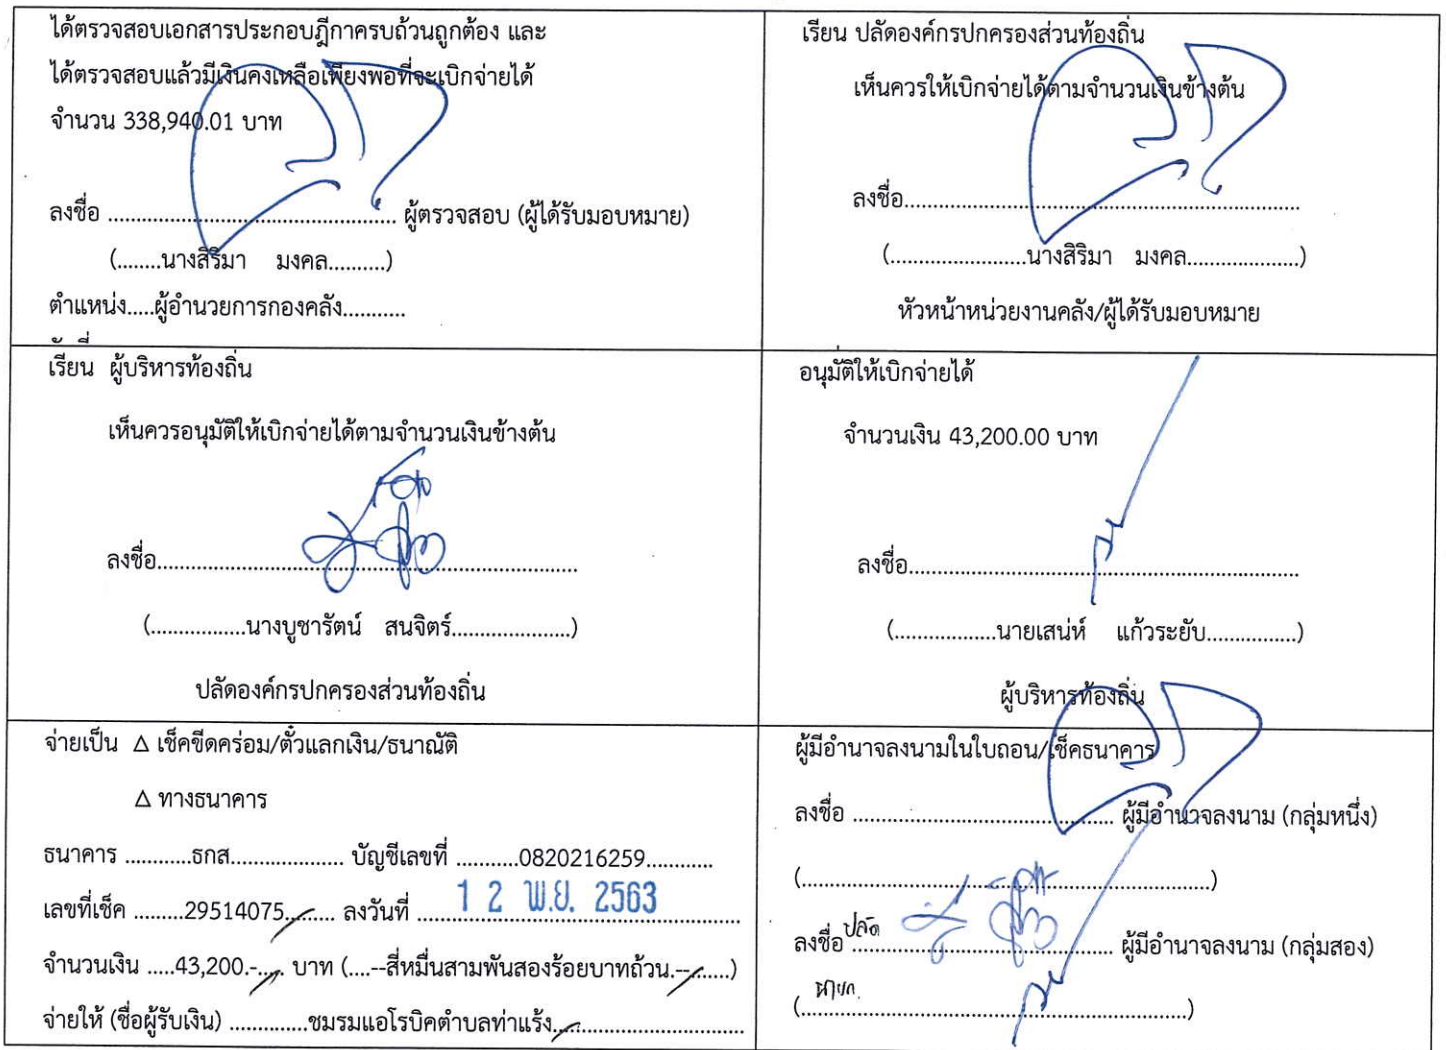 ได้ตรวจสอบเอกสารประกอบฎีกาครบถ้วนถูกต้อง และ
ได้ตรวจสอบแล้วมีเงินคงเหลือเพียงพอที่จะเบิกจ่ายได้
จำนวน 338,940.01 บาท
ลงชื่อ ................................................ ผู้ตรวจสอบ (ผู้ได้รับมอบหมาย)
(........นางสิริมา มงคล..........)
ตำแหน่ง.....ผู้อำนวยการกองคลัง...........
เรียน ปลัดองค์กรปกครองส่วนท้องถิ่น
เห็นควรให้เบิกจ่ายได้ตามจำนวนเงินข้างต้น
ลงชื่อ..................................................................
(.......................นางสิริมา มงคล...................)
หัวหน้าหน่วยงานคลัง/ผู้ได้รับมอบหมาย
เรียน ผู้บริหารท้องถิ่น
เห็นควรอนุมัติให้เบิกจ่ายได้ตามจำนวนเงินข้างต้น
ลงชื่อ......................................................................
(................นางบูชารัตน์ สนจิตร์....................)
ปลัดองค์กรปกครองส่วนท้องถิ่น
อนุมัติให้เบิกจ่ายได้
จำนวนเงิน 43,200.00 บาท
ลงชื่อ.................................................................
(.................นายเสน่ห์ แก้วระยับ...............)
ผู้บริหารท้องถิ่น
จ่ายเป็น Δ เช็คขีดคร่อม/ตั๋วแลกเงิน/ธนาณัติ
Δ ทางธนาคาร
ธนาคาร ...........ธกส................... บัญชีเลขที่ ...........0820216259...........
เลขที่เช็ค .........29514075......... ลงวันที่ ....1 2 พ.ย. 2563..............
จำนวนเงิน .....43,200.-..... บาท (....--สี่หมื่นสามพันสองร้อยบาทถ้วน.--.......)
จ่ายให้ (ชื่อผู้รับเงิน) .............ชมรมแอโรบิคตำบลท่าแร้ง................................
ผู้มีอำนาจลงนามในใบถอน/เช็คธนาคาร
ลงชื่อ ............................................ ผู้มีอำนาจลงนาม (กลุ่มหนึ่ง)
(....................................................................)
ลงชื่อ ปลัด............................................ ผู้มีอำนาจลงนาม (กลุ่มสอง)
(..นายก..............................................................)